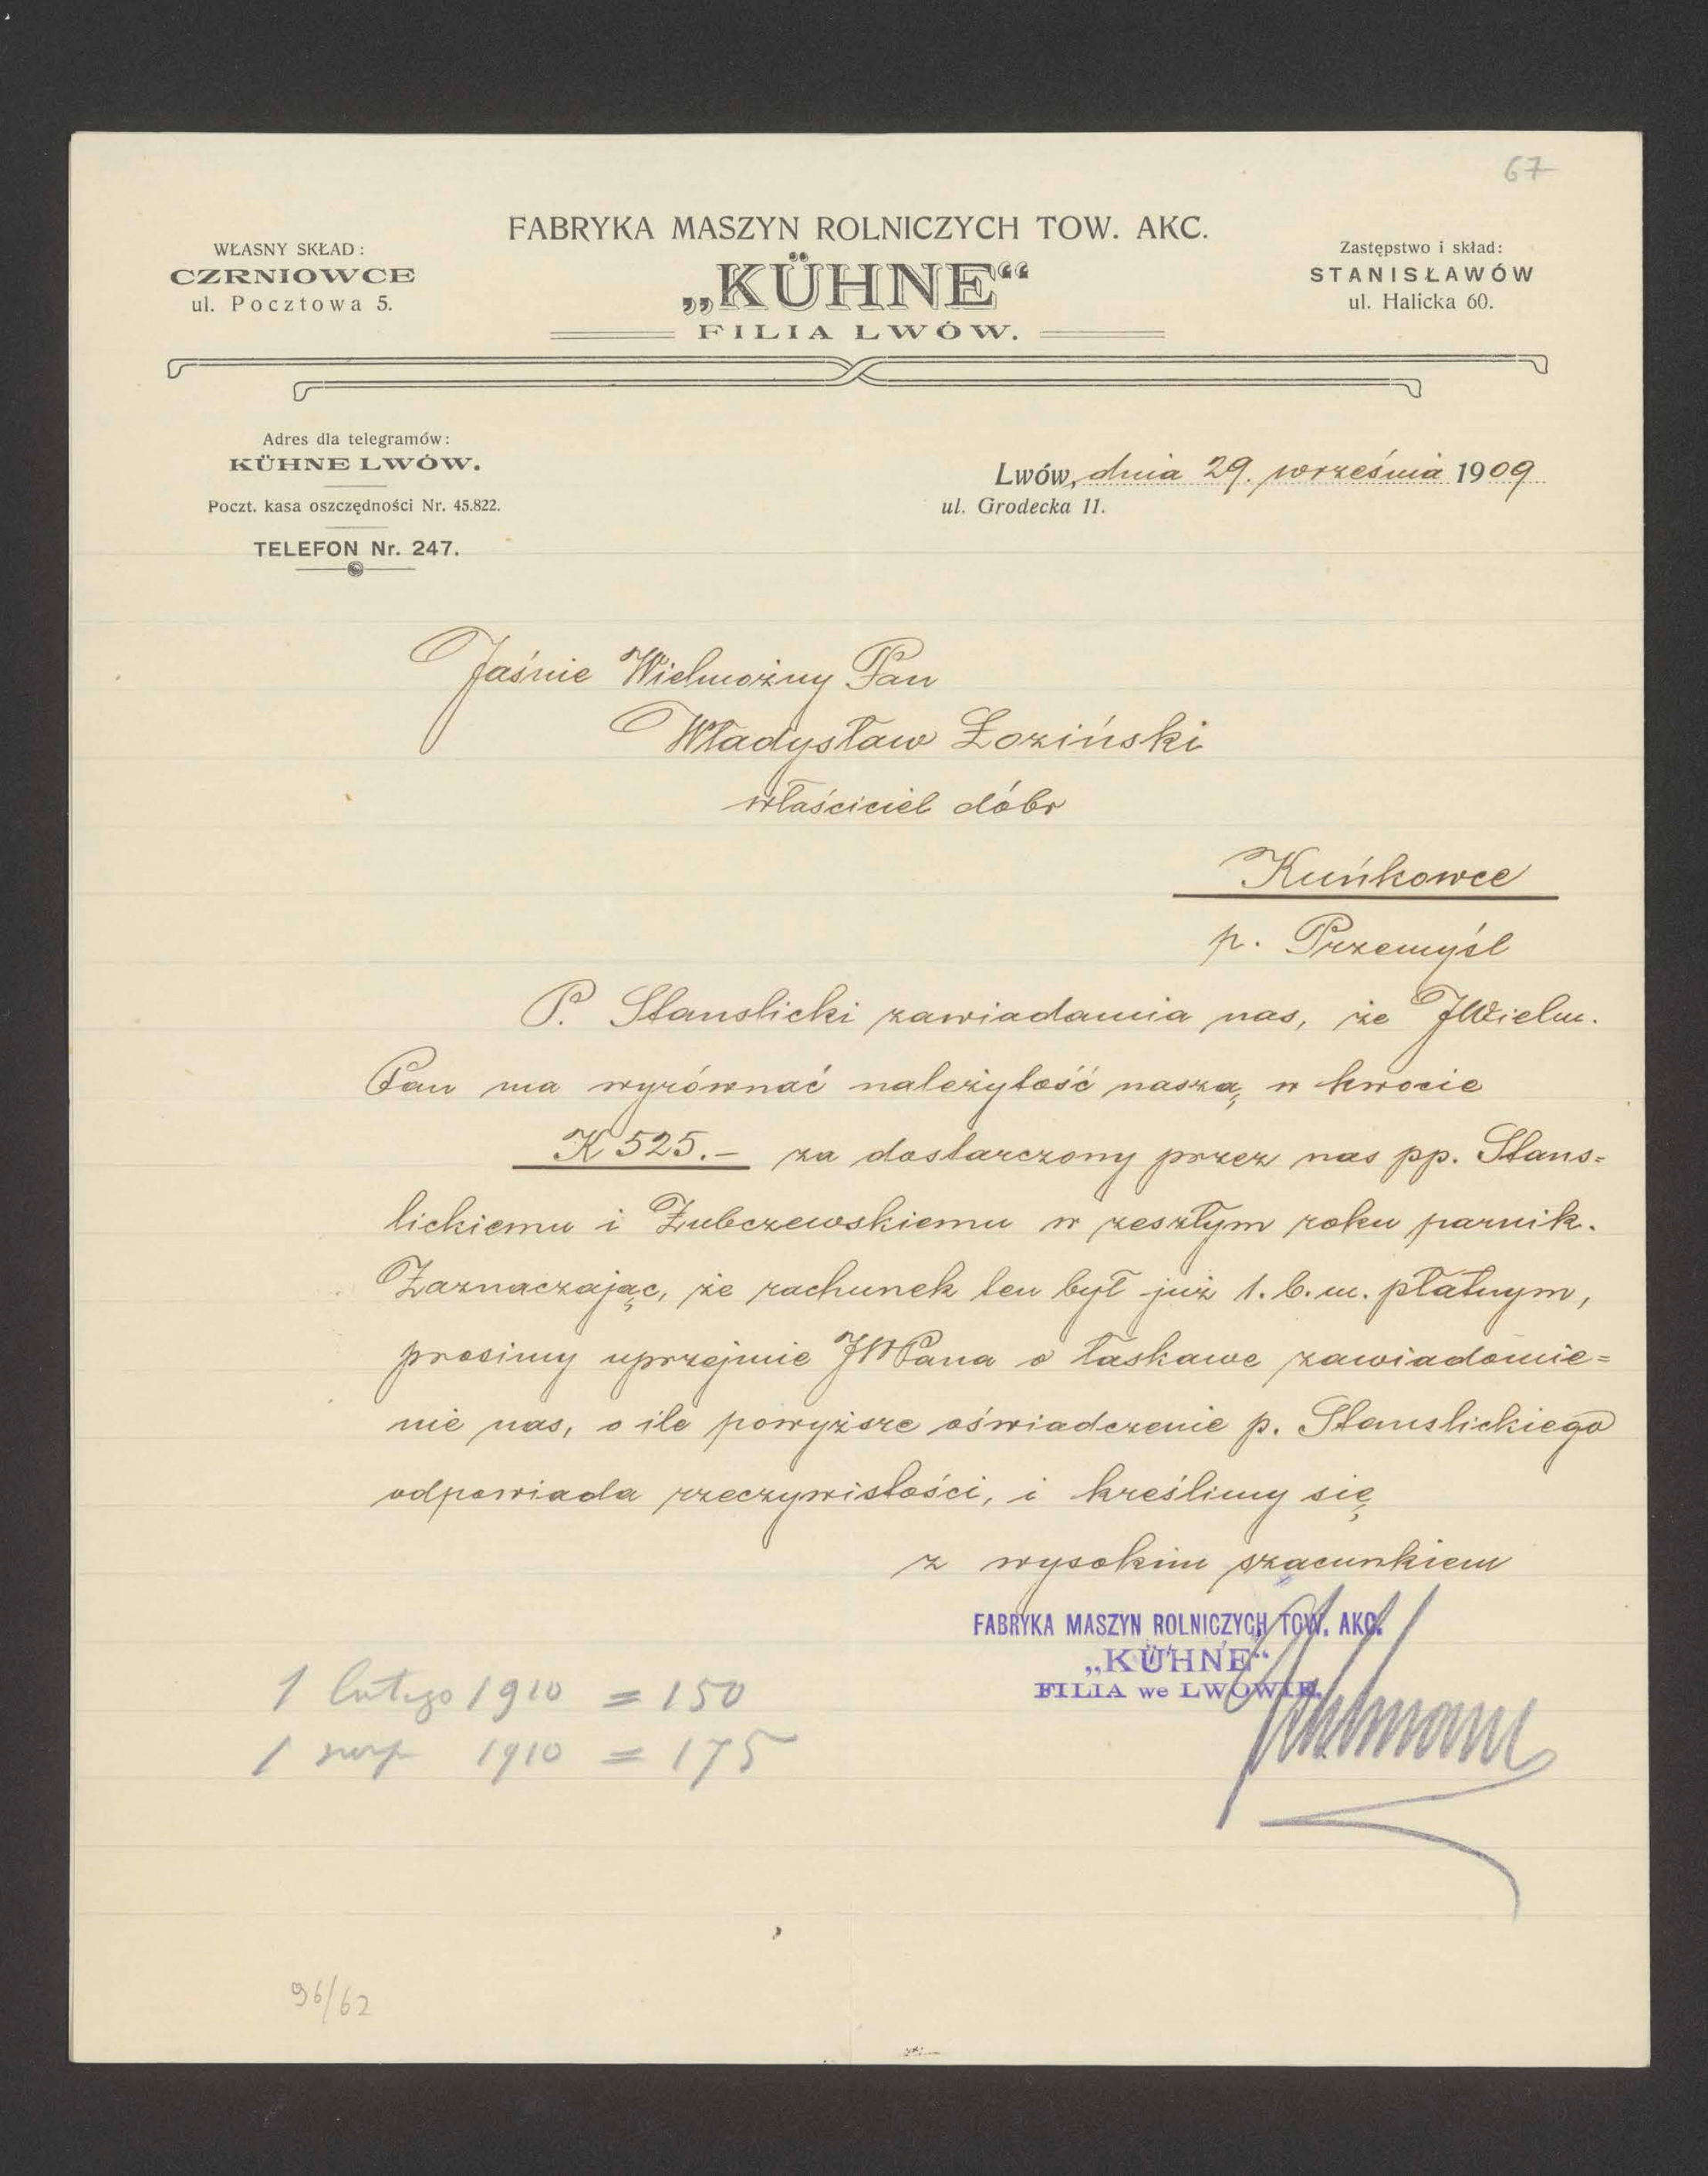 67
FABRYKA MASZYN ROLNICZYCH TOW. AKC.
„KÜHNE“
FILIA LWÓW.
WŁASNY SKŁAD:
CZRNIOWCE
ul. Pocztowa 5.
Zastępstwo i skład:
STANISŁAWÓW
ul. Halicka 60.
Adres dla telegramów:
KÜHNE LWÓW.
Poczt. kasa oszczędności Nr. 45.822.
TELEFON Nr. 247.
Lwów, dnia 29. września 1909
ul. Grodecka 11.
Jaśnie Wielmożny Pan
Władysław Łoziński
właściciel dóbr
Kuńkowce
p. Przemyśl
P. Stanslicki zawiadamia nas, że JWielm.
Pan ma wyrównać należytość naszą w kwocie
K 525.– za dostarczony przez nas pp. Stans=
lickiemu i Zubczewskiemu w zeszłym roku parnik.
Zaznaczając, że rachunek ten był już 1. b. m. płatnym,
prosimy uprzejmie JWPana o łaskawe zawiadomie=
nie nas, o ile powyższe oświadczenie p. Stanslickiego
odpowiada rzeczywistości, i kreślimy się
z wysokim szacunkiem
FABRYKA MASZYN ROLNICZYCH TOW. AKC.
„KÜHNE“
FILIA we LWOWIE.
1 lutego 1910 = 150
1 sierp 1910 = 175
96/62